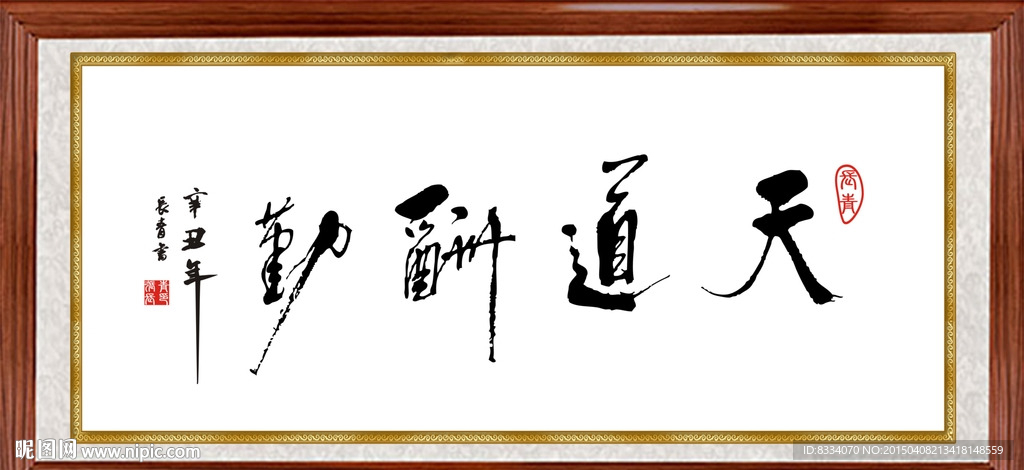 天道酬勤
辛丑年
長青書
長青
昵图网 www.nipic.com
ID:8334070 NO:20150408213418148559